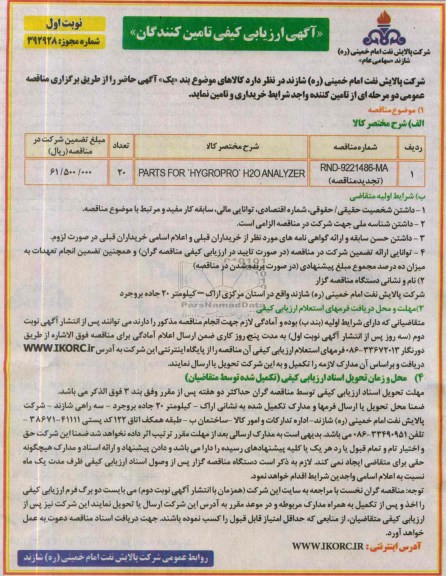 نوبت اول
شماره مجوز: ۳۹۲۹۲۸
«آگهی ارزیابی کیفی تامین کنندگان»
شرکت پالایش نفت امام خمینی (ره)
شازند «سهامی عام»
شرکت پالایش نفت امام خمینی (ره) شازند در نظر دارد کالاهای موضوع بند «یک» آگهی حاضر را از طریق برگزاری مناقصه
عمومی دو مرحله ای از تامین کننده واجد شرایط خریداری و تامین نماید.
۱) موضوع مناقصه
الف) شرح مختصر کالا
ردیف شماره مناقصه شرح مختصر کالا تعداد مبلغ تضمین شرکت در مناقصه (ریال)
۱ RND-9221486-MA (تجدید مناقصه) PARTS FOR `HYGROPRO` H2O ANALYZER ۲۰ ۶۱/۵۰۰/۰۰۰
ب) شرایط اولیه متقاضی
۱ - داشتن شخصیت حقیقی/حقوقی، شماره اقتصادی، توانایی مالی، سابقه کار مفید و مرتبط با موضوع مناقصه.
۲ - داشتن شناسه ملی جهت شرکت در مناقصه الزامی است.
۳ - داشتن حسن سابقه و ارائه گواهی نامه های مورد نظر از خریداران قبلی و اعلام اسامی خریداران قبلی در صورت لزوم.
۴ - توانایی ارائه تضمین شرکت در مناقصه (در صورت تایید در ارزیابی کیفی مناقصه گران) و همچنین تضمین انجام تعهدات به
میزان ده درصد مجموع مبلغ پیشنهادی (در صورت برنده شدن در مناقصه)
۲) نام و نشانی دستگاه مناقصه گزار
شرکت پالایش نفت امام خمینی (ره) شازند واقع در استان مرکزی اراک – کیلومتر ۲۰ جاده بروجرد
۳) مهلت و محل دریافت فرمهای استعلام ارزیابی کیفی
متقاضیانی که دارای شرایط اولیه (بند ب) بوده و آمادگی لازم جهت انجام مناقصه مذکور را دارند می توانند پس از انتشار آگهی نوبت
دوم (سه روز پس از انتشار آگهی نوبت اول) به مدت پنج روز کاری ضمن ارسال اعلام آمادگی برای مناقصه فوق الاشاره از طریق
دورنگار ۳۳۶۷۲۰۱۳-۰۸۶ فرمهای استعلام ارزیابی کیفی آن مناقصه را از پایگاه اینترنتی این شرکت به آدرس WWW.IKORC.Ir
دریافت و براساس آن مدارک لازمه را تکمیل و به این شرکت تحویل یا ارسال نمایند.
۴) محل و زمان تحویل اسناد ارزیابی کیفی (تکمیل شده توسط متقاضیان)
مهلت تحویل اسناد ارزیابی کیفی توسط مناقصه گران حداکثر دو هفته پس از مقرر وفق بند ۳ فوق الذکر می باشد.
ضمنا محل تحویل یا ارسال فرمها و مدارک تکمیل شده به نشانی اراک - کیلومتر ۲۰ جاده بروجرد - سه راهی شازند - شرکت
پالایش نفت امام خمینی (ره) شازند- اداره تدارکات و امور کالا -ساختمان ب - طبقه همکف اتاق ۱۲۲ کد پستی ۴۱۱۱۱-۳۸۶۷۱
تلفن ۳۳۴۹۰۹۵۱-۰۸۶ می باشد. بدیهی است به مدارک ارسالی بعد از مهلت مقرر ترتیب اثر داده نخواهد شد ضمنا این شرکت حق
و اختیار تام و تمام قبول یا رد هر یک یا کلیه پیشنهادهای رسیده را دارا می باشد و دادن پیشنهاد و ارائه اسناد و مدارک هیچگونه
حقی برای متقاضی ایجاد نمی کند. لازم به ذکر است دستگاه مناقصه گزار پس از وصول اسناد ارزیابی کیفی ظرف مدت یک ماه
نسبت به اعلام اسامی واجدین شرایط اقدام خواهد نمود.
توجه: مناقصه گران نخست با مراجعه به سایت این شرکت (همزمان با انتشار آگهی نوبت دوم) می بایست دو برگ فرم ارزیابی کیفی
را اخذ و پس از تکمیل به همراه مدارک مربوطه و در موعد مقرر به آدرس این شرکت ارسال یا تحویل نمایند این شرکت نیز پس از
ارزیابی کیفی متقاضیان، از منابعی که حداقل امتیاز قابل قبول را کسب نموده باشند. جهت دریافت اسناد مناقصه دعوت به عمل
خواهد آورد.
آدرس اینترنتی : WWW.IKORC.IR
روابط عمومی شرکت پالایش نفت امام خمینی (ره) شازند